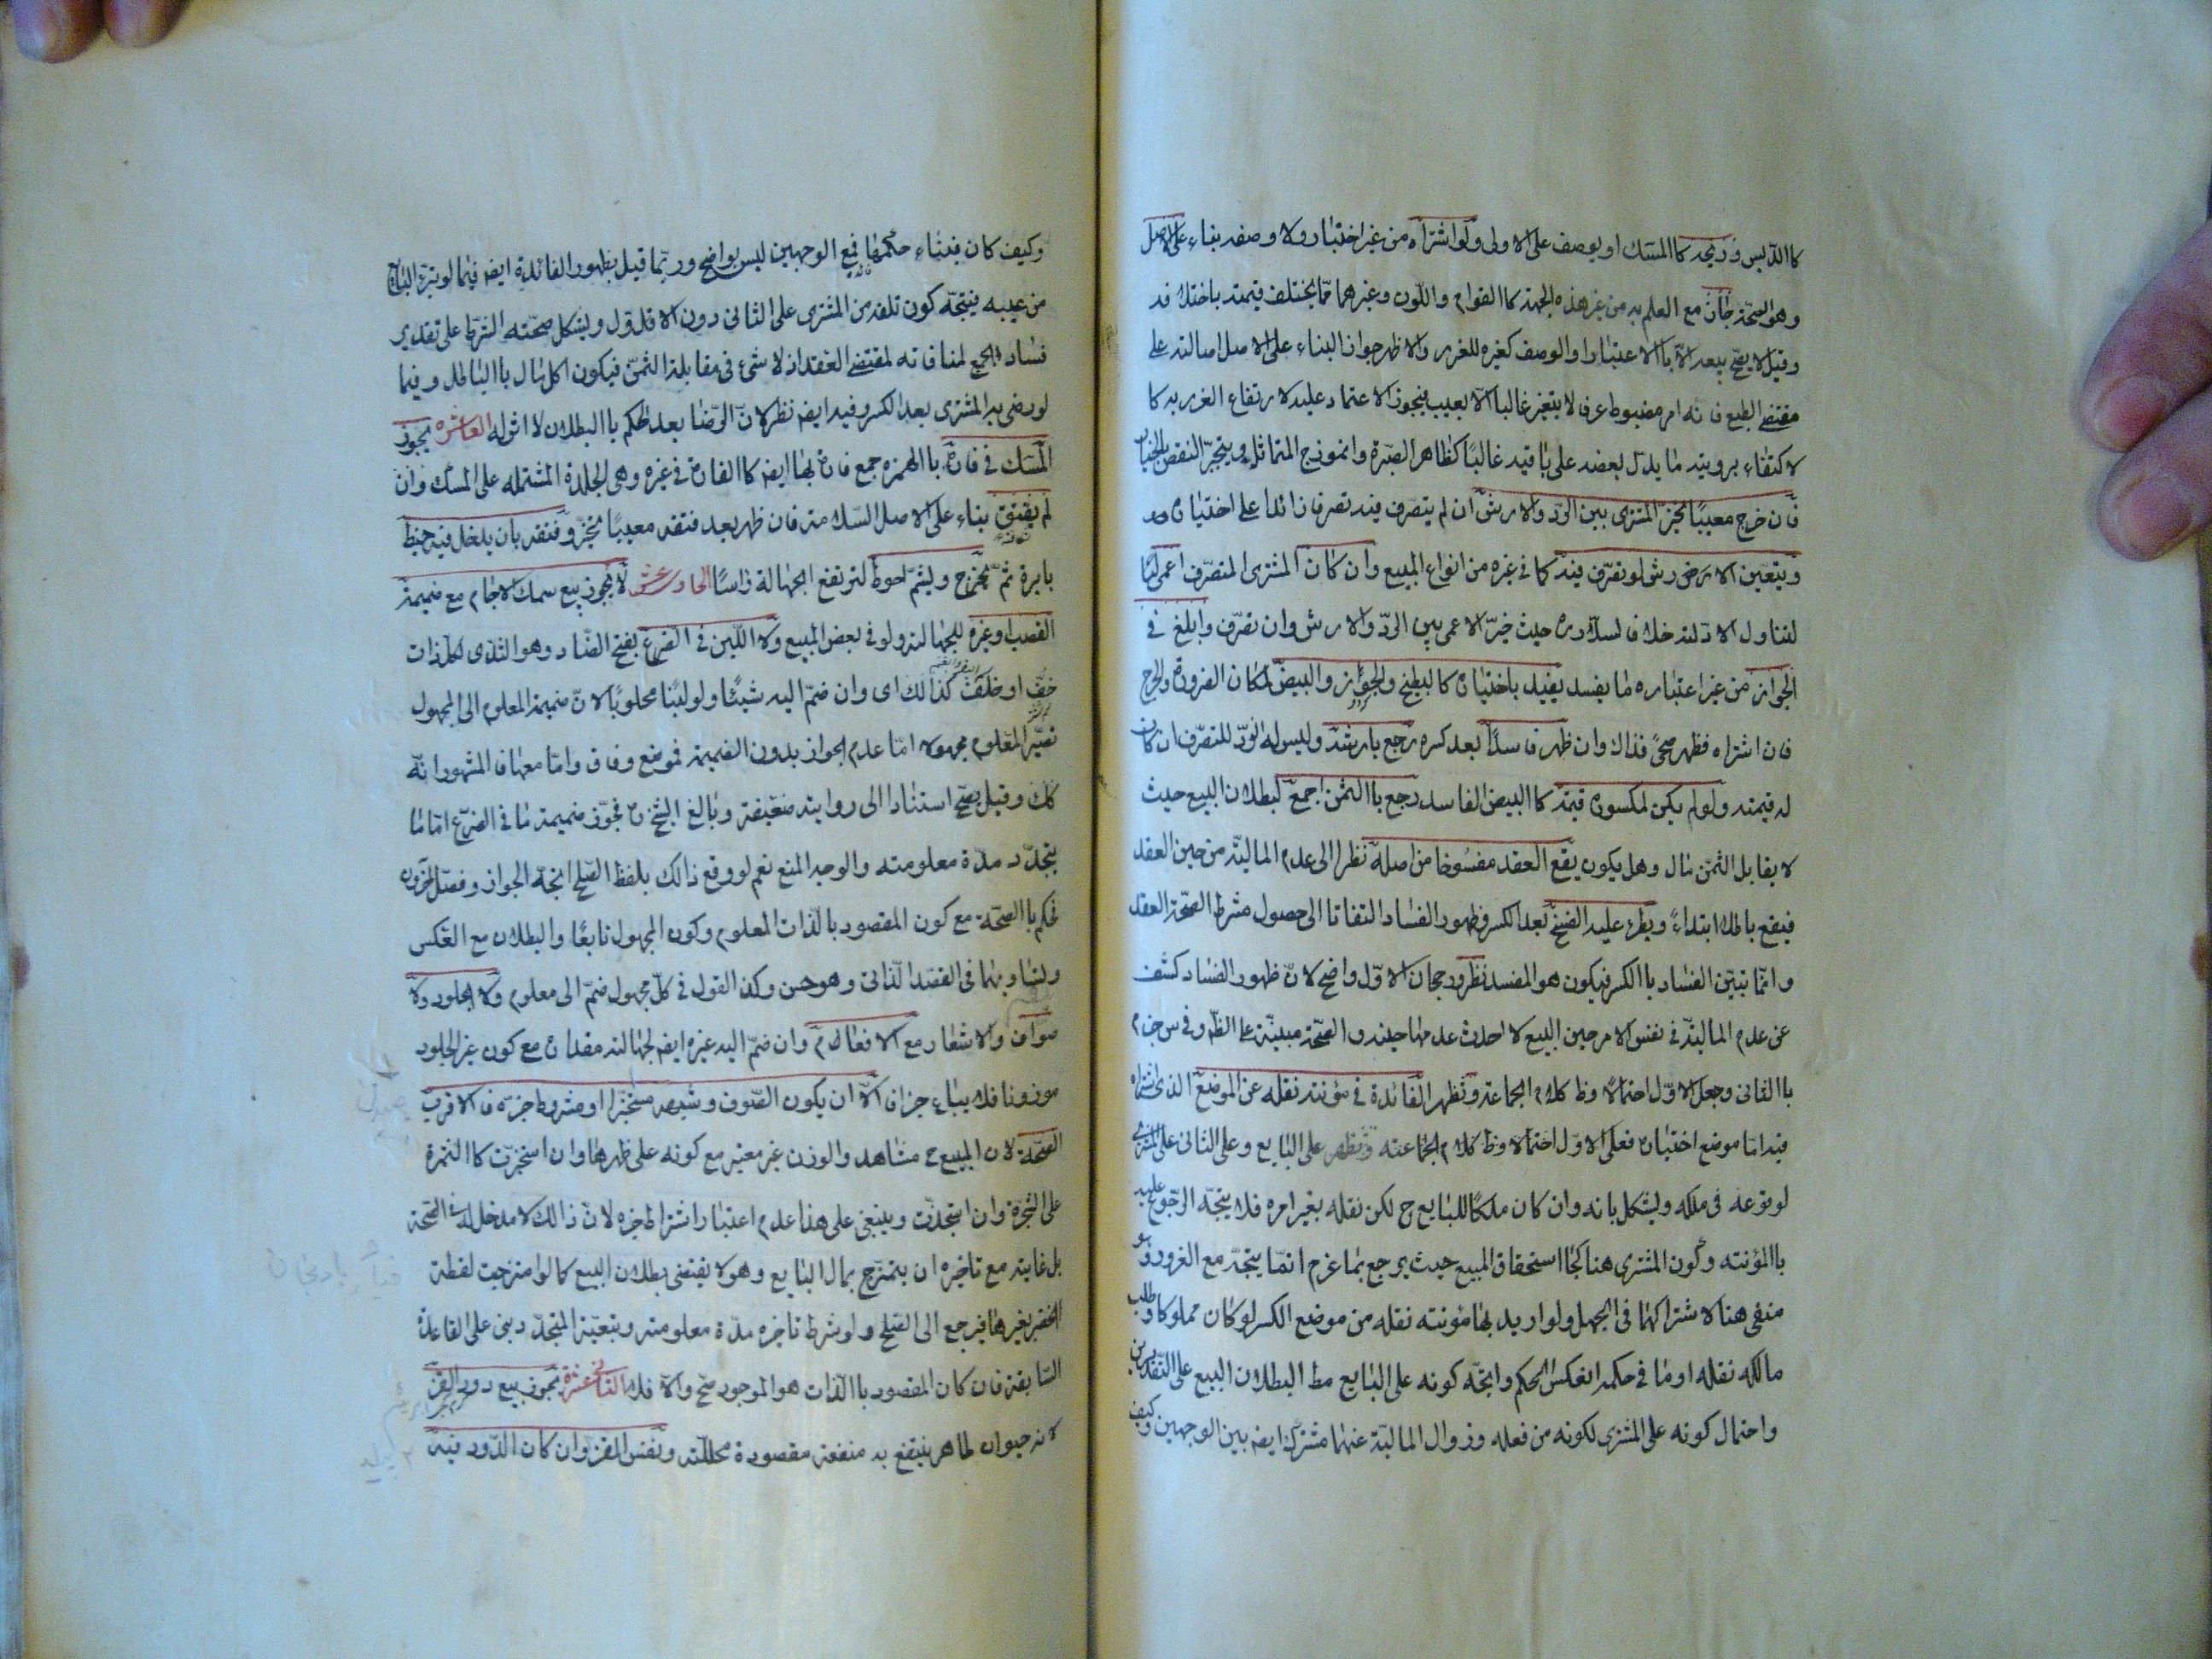 كاالدّبس وريحه كاالمسك او يوصف على الاولى ولو اشتراه من غير اختبار ولا وصف بناء على الاصل
وهو الصحّة جاز مع العلم به من غير هذه الجهة كاالقوام واللّون وغيرهما ممّا يختلف قيمته باختلافه
وقيل لا يصّح بيعه الاّ باالاعتبار او الوصف كغيره للغرر والاظهر جواز البناء على الاصل احالته على
مقتضى الطبع فانه امر مضبوط عرفا لا يتغير غالبا الاّ بعيب فيجوز الاعتماد عليه لارتفاع الغرر به كا
لاكتفاء برويته ما يدل بعضه على باقيه غالبًا كظاهر الصّبرة وانموذج المتماثل ويتجبّر النقص بالخيار
فان خرج معيبًا تخيّر المشترى بين الردّ والارش ان لم يتصرف فيه تصرفا زائدا على اختباره
ويتعين الارش لو تصرّف فيه كما فى غيره من انواع المبيع وان كان المشترى المتصرّف اعمى
لتناول الادّلة خلافا لسلاّر حيث خيّر الاعمى بين الردّ والارش وان تصرّف وابلغ فى
الجواز من غير اعتباره ما يفسد باختباره كالبطيخ والجوز والبيض لمكان الضرورة والحرج
فان اشتراه فظهر صحيحًا فذاك وان ظهر فاسدًا بعد كسره رجع بارشه وليس له الردّ للتصرّف ان كان
له قيمته ولو لم يكن لمكسوره قيمة كاالبيض الفاسد رجع باالثمن اجمع لبطلان البيع حيث
لا يقابل الثمّن مال وهل يكون يقع العقد مفسوخا من اصله نظرا الى عدم الماليّة من حين العقد
فيقع باطلا ابتداءً او يطرء عليه الفسخ بعد الكسر وظهور الفساد التفاتا الى حصول شرط الصحّة حين العقد
وانّما تبيّن الفساد باالكسر فيكون هو المفسد نظر ورجحان الاوّل واضح لانّ ظهور الفساد كشف
عن عدم الماليّة فى نفس الامر حين البيع لا احدث عدمها حينه والصحّة مبنيّة على الظّ وفى س جزم
باالثانى وجعل الاوّل احتمالا وظ كلام الجماعة وتظهر الفائدة فى مؤنته نقله عن الموضع الذى اشتراه
فيه اما موضع اختباره فعلى الاوّل احتمالا وظ كلام الجماعته وتظهر على البايع وعلى الثانى على المشترى
لوقوعه فى ملكه ويشكل بانه وان كان ملكًا للبايع ح لكن نقله بغير امره فلا يتجّه الرّجوع عليه
باالمؤنته وكون المشترى هنا كجا استحقاق المبيع حيث يرجع بما غرم انمّا يتجّه مع الغرور وهو
منفى هنا لاشتراكهما فى الجهل ولو اريد بها مؤنته نقله من موضع الكسر لو كان مملوكا وطلب
مالكه نقله او ما فى حكمه انعكس الحكم واتجّه كونه على البايع مط البطلان البيع على التّقديرين
واحتمال كونه على المشترى لكونه من فعله وزوال الماليّة عنهما مشترك ايضا بين الوجهين وكيف
وكيف كان فبناء حكمها مع الوجهين ليس بواضح وربمّا قيل بظهور الفائدة ايضا فيما لو تبرّء البايع
من عيبه فيتجّه كون تلفه من المشترى على الثانى دون الاوّل ويشكل صحّته الشّرط على تقدير
فساد الجميع لمنافاته لمقتضى العقد اذ لا شئ فى مقابلة الثمّن فيكون اكل مال باالباطل وفيما
لو رضى به المشترى بعد الكسر وفيه ايضا نظر لانّ الرّضا بعد الحكم باالبطلان لا اثر له العاشره يجوز
المسك فى فارة باالهمزه جمع فاره بها ايضا كاالفاره فى غيره وهى الجلدة المشتمله على المسك وان
لم يفتق بناء على الاصل السّلامة فان ظهر بعد فتقه معيبًا تخيّر وفتقه بان يدخل فيه خيط
بابرة ثمّ يخرج ويشمّ احوط لترتفع الجهالة رأسًا الحاديه عشر لا يجوز بيع سمك الاجام مع ضميمة
القصب او غيره للجهالته ولو فى بعض المبيع ولا اللّبن فى الضرع بفتح الضّاد وهو الثدى لكلّ ذات
خفّ او ظلف كذالك اى وان ضمّ اليه شيئًا ولو لبنًا محلوبًا لانّ ضميمة المعلوم الى المجهول
تصيّر المعلوم مجهولا امّا عدم الجواز بدون الضميمة فموضع وفاق وامّا معها فالمشهور انّه
كك وقيل يصّح استنادا الى روايته ضعيفة وبالغ الشيخ ره فجوّز ضميمة ما فى الضرع امّا ما
يتجدّد مدّة معلومته والوجه المنع نعم لو وقع ذالك بلفظ الصّلح اتجّه الجواز وفصّل آخرون
فحكم باالصّحّة مع كون المقصود بالّذات المعلوم وكون المجهول تابعًا والبطلان مع العكس
وتساويهما فى القصد الذاتى وهو حسن وكذا القول فى كلّ مجهول ضمّ الى معلوم ولا الجلود ولا
صواف والاشعار مع الانعام وان ضمّ اليه غيره ايضا لجهالته مقداره مع كون غير الجلود
موزونا فلا يباع جزافا الاّ ان يكون الصّوف وشبهه مستجزا او مشروط جزّه فالاقرب
الصّحّة لان المبيع ح مشاهد والوزن غير معتبر مع كونه على ظهرها وان استجزّت كاالثمرة
على الشّجرة وان استجذّت وينبغى على هذا عدم اعتبار اشتراط جزه لانّ ذالك لا مدخل له فى الصّحة
بل غايته مع تاخيره ان يتمزّج بمال البايع وهو لا يقتضى بطلان البيع كما لو امتزجت لقطة
الخضر بغيرها فيرجع الى الصّلح ولو شرط تاخيره مدّة معلومته وتبعيّة المتجدّد بنى على القاعدة
السّابقة فان كان المقصود باالذّات هو الموجود صّح والاّ فلا الثانى عشرة يجوز بيع دود القز
لانه حيوان طاهر ينتفع به منفعة مقصودة محلّلته ونفس القز وان كان الدّود فيه